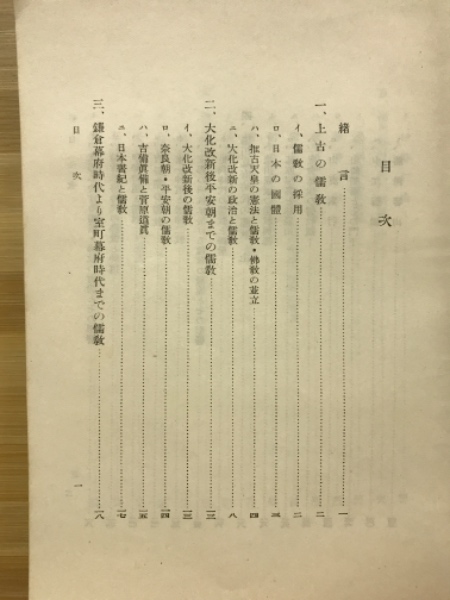 目次
緒言……一
一、上古の儒敎……二
イ、儒敎の採用……二
ロ、日本の國體……三
ハ、推古天皇の憲法と儒敎・佛敎の並立……四
ニ、大化改新の政治と儒敎……八
二、大化改新後平安朝までの儒敎……一三
イ、大化改新後の儒敎……一三
ロ、奈良朝・平安朝の儒敎……一四
ハ、吉備眞備と菅原道眞……一五
ニ、日本書紀と儒敎……一七
三、鎌倉幕府時代より室町幕府時代までの儒敎……一八
目次 一